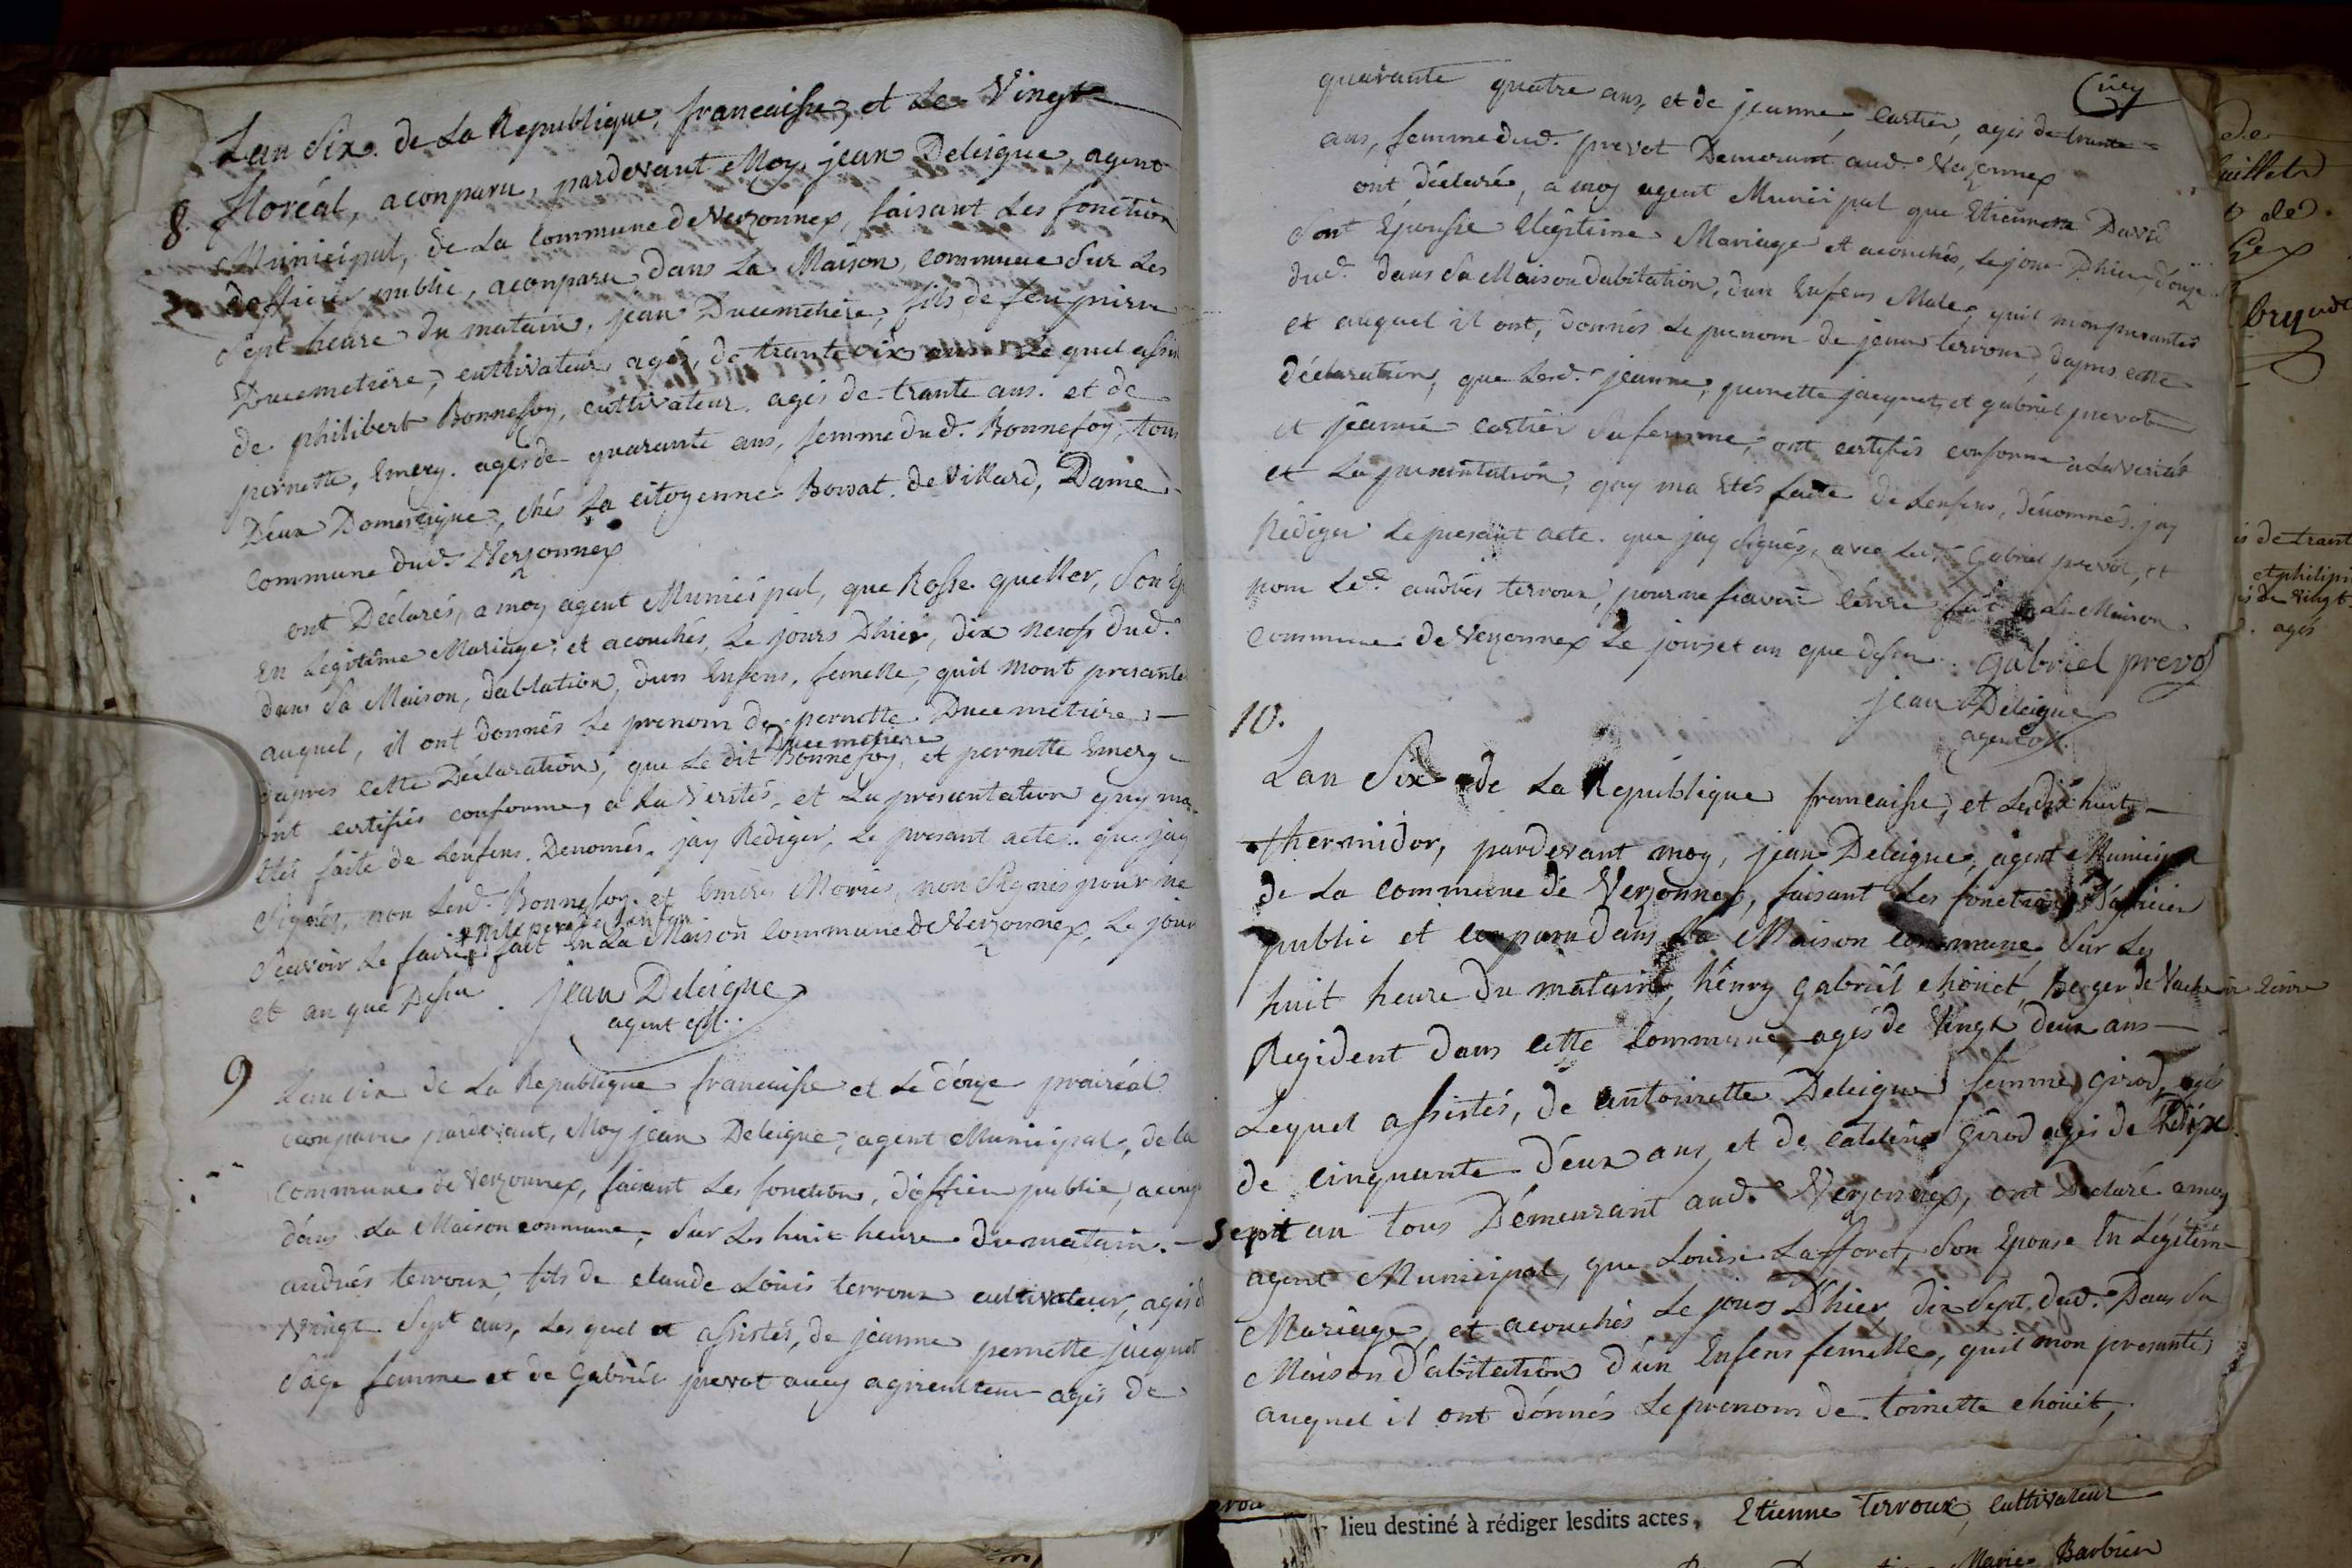 Lan Six de La Republique, francaisse, et Le Vingt
8. floréal, aconparu, pardevant Moy, jean Deleigne, agent
Municipal, de La Commune de Verzonnex, faisant Les fonction
dofficier public, aconparu dans La Maison, commune Sur Les
Sept heure du matain, jean Ducemetiere, fils de feu
Ducemetiere, cultivateur, agés, de trante six ans Le quel assis
de philibert Bonnefoy, cultivateur, agés de trante ans. et de
pernette, Emery. agés de quarante ans, femme dud. Bonnefoy, tous
Deux Domestique, chés La citoyenne Bowat. de Villard, Daine
Commune dud. Verzonnex
ont Déclarés, a moy agent Municipal, que Rosse. queller, Son Ep
En Legitime Mariage, et acouchés, Le jours Dhier, dix neuf dud.
dans Sa Maison, dabtation, dun Enfens, femelle, quil mont presante
auquel, il ont donnés Le prenom de pernette Ducemetiere —
Ducemetiere
dapres cette Déclaration, que Le dit Bonnefoy, et pernette Emery
ont certifiés conforme, a La Verités, et La presantation quy ma
étés faite de Lenfens. Denomés. jay Rediger, Le presant acte. que jay
Signés, non Led. Bonnefoy, et Emeri Moriés, non Signés pour ne
+ Ny Le pere de Lenfen
Scavoir Le faire + fait En La Maison Commune de Verzonnex, Le jour
et an que Desu. jean Deleigne
agent off..
9 Lan six de La Republique francaisse et Le douze prairéal
conparu pardevant, Moy jean Deleigne, agent Municipal, de la
Commune de Verzonnex, faisant Les fonctions, dofficier public, aconp
dans La Maison commune, Sur Les huit heure du matain. —
andrés terroux, fils de claude Louis terroux cultivateur, agés d
Vaingt Sept ans, Les quel et assistés, de jeanne pernette jacquet
Sage femme et de Gabriel prevot aussy agriculteur agés de
quarante quatre ans, et de jeanne, Cartier, agés de trante
ans, femme dud. prevot Demeurant aud. Verzonnex
ont déclaré, a moy agent Municipal que Etiennera David
Sont Epousse Elegitime Mariage et acouchés, Le jour Dhier, donze
dud. dans Sa Maison dabitation, dun Enfens Male, quil mon presantés
et auquel il ont, donnés Le prenom de jean terroux, dapres cette
déclaration, que Led. jeanne, pernette jacquet, et gabriel prevot
et jeanne cartier Sa femme, ont certifiés conforme a La verités
et La presantation, quy ma Etés faite de Lenfens, dénommés. jay
Rédiger Le presant acte. que jay Signés, avec Led. Gabriel prevot, et
nom Led. andrés terroux, pour ne scavoir Lécrire fait en La Maison
Commune de Verzonnex Le jours et an que desu. Gabriel prevos
jean Deleigne
agent off.
10.
Lan Six de La Republique francaisse, et Le dix huit —
thermidor, pardevant moy, jean Deleigne, agent Municipal
de La commune de Verzonnex, faisant Les fonction Dofficier
public et conparu dans La Maison commune Sur Les
huit heure du matain, henry gabriel choüet, Berger de Vache
Regident dans cette Commune, agés de Vingt deux ans —
Lequel assistés, de antoinette Deleigne femme girod, agés
de cinquante deux ans, et de catérine Girod agés de dix
Sept an tous Démeurant aud. Verzonnex, ont Declaré a moy
agent Municipal, que Louise Lafforet, Son Epouse En Legitime
Mariage, et acouchés Le jours D'hier dix Sept dud. Dans Sa
Maison D'abitation d'un Enfens femélle, quil mon presantés
auquel il ont donnés Le prenom de toinette choüet,
lieu destiné à rédiger lesdits actes, Etienne Terroux, Cultivateur
Marie Barbier